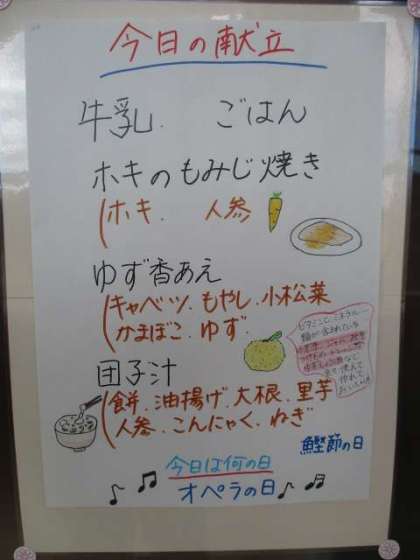 今日の献立
牛乳. ごはん
ホキのもみじ焼き
ホキ. 人参
ゆず香あえ
キャベツ. もやし. 小松菜
かまぼこ. ゆず
ビタミンC. ミネラル
類が含まれている
団子汁
餅. 油揚げ. 大根. 里芋
人参. こんにゃく. ねぎ
鰹節の日
今日は何の日
オペラの日